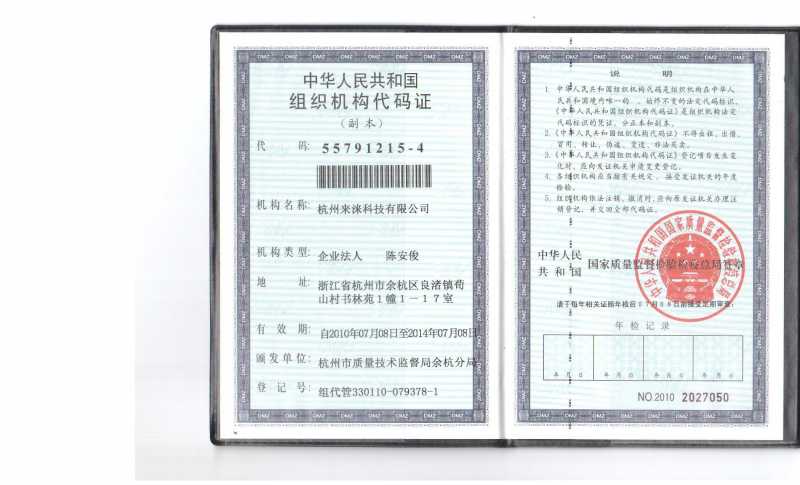 中华人民共和国
组织机构代码证
（副本）
代 码: 55791215-4
机构名称: 杭州来涞科技有限公司
机构类型: 企业法人 陈安俊
地 址: 浙江省杭州市余杭区良渚镇荀
山村书林苑1幢1－17室
有 效 期: 自2010年07月08日至2014年07月08日
颁发单位: 杭州市质量技术监督局余杭分局
登 记 号: 组代管330110-079378-1
说 明
1. 中华人民共和国组织机构代码是组织机构在中华人
民共和国境内唯一的、始终不变的法定代码标识，
《中华人民共和国组织机构代码证》是组织机构法定
代码标识的凭证，分正本和副本。
2.《中华人民共和国组织机构代码证》不得出租、出借、
冒用、转让、伪造、变造、非法买卖。
3.《中华人民共和国组织机构代码证》登记项目发生变
化时，应向发证机关申请变更登记。
4. 各组织机构应当按有关规定，接受发证机关的年度
检验。
5. 组织机构依法注销、撤消时，应向原发证机关办理注
销登记，并交回全部代码证。
中华人民
共和国 国家质量监督检验检疫总局签章
中华人民共和国国家质量监督检验检疫总局
请于每年相关证照年检后07月08日前接受定期审查:
年检记录
年 月 日 年 月 日 年 月 日 年 月 日
NO.2010 2027050